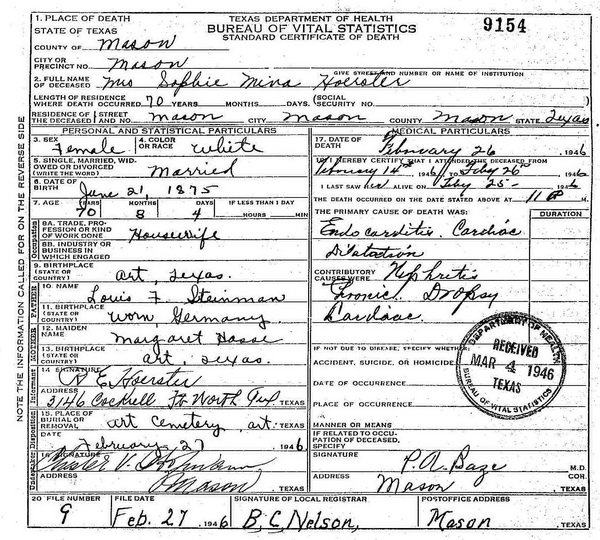 1. PLACE OF DEATH TEXAS DEPARTMENT OF HEALTH 9154
STATE OF TEXAS BUREAU OF VITAL STATISTICS
COUNTY OF Mason STANDARD CERTIFICATE OF DEATH
CITY OR PRECINCT NO. Mason
GIVE STREET AND NUMBER OR NAME OF INSTITUTION
2. FULL NAME OF DECEASED Mrs Sophie Mina Hoerster
LENGTH OF RESIDENCE WHERE DEATH OCCURRED 70 YEARS MONTHS DAYS (SOCIAL SECURITY NO.)
RESIDENCE OF THE DECEASED STREET AND NO. Mason CITY Mason COUNTY Mason STATE Texas
PERSONAL AND STATISTICAL PARTICULARS
3. SEX Female 4. COLOR OR RACE White
5. SINGLE, MARRIED, WIDOWED OR DIVORCED (WRITE THE WORD) Married
6. DATE OF BIRTH June 21, 1875
7. AGE YEARS MONTHS DAYS IF LESS THAN 1 DAY
70 8 4 HOURS MIN
Occupation
8A. TRADE, PROFESSION OR KIND OF WORK DONE Housewife
8B. INDUSTRY OR BUSINESS IN WHICH ENGAGED
9. BIRTHPLACE (STATE OR COUNTRY) Art, Texas.
FATHER
10. NAME Louis F Steinman
11. BIRTHPLACE (STATE OR COUNTRY) Germany
MOTHER
12. MAIDEN NAME Margaret Hasse
13. BIRTHPLACE (STATE OR COUNTRY) Art, Texas.
Informant
14. SIGNATURE E. Hoerster
ADDRESS 3146 Cockrell Ft. Worth Tex. TEXAS
15. PLACE OF BURIAL OR REMOVAL Art Cemetery, Art. TEXAS
DATE February 27 1946
Undertaker Disposition
16. SIGNATURE
ADDRESS Mason TEXAS
MEDICAL PARTICULARS
17. DATE OF DEATH February 26 1946
18. I HEREBY CERTIFY THAT I ATTENDED THE DECEASED FROM
February 14th 1946 TO Feby 26th 1946
I LAST SAW her ALIVE ON Feby 25- 1946
THE DEATH OCCURRED ON THE DATE STATED ABOVE AT 11 M
THE PRIMARY CAUSE OF DEATH WAS: DURATION
Endocarditis. Cardiac
Dilatation
CONTRIBUTORY CAUSES WERE Nephritis
Chronic. Dropsy
Cardiac
IF NOT DUE TO DISEASE, SPECIFY WHETHER
ACCIDENT, SUICIDE, OR HOMICIDE
DATE OF OCCURRENCE
PLACE OF OCCURRENCE
MANNER OR MEANS
IF RELATED TO OCCUPATION OF DECEASED, SPECIFY
SIGNATURE P. A. Baze M.D.
COR.
ADDRESS Mason TEXAS
DEPARTMENT OF HEALTH
RECEIVED
MAR 4 1946
TEXAS
BUREAU OF VITAL STATISTICS
20 FILE NUMBER FILE DATE SIGNATURE OF LOCAL REGISTRAR POSTOFFICE ADDRESS
9 Feb. 27 1946 B. C. Nelson, Mason
NOTE THE INFORMATION CALLED FOR ON THE REVERSE SIDE